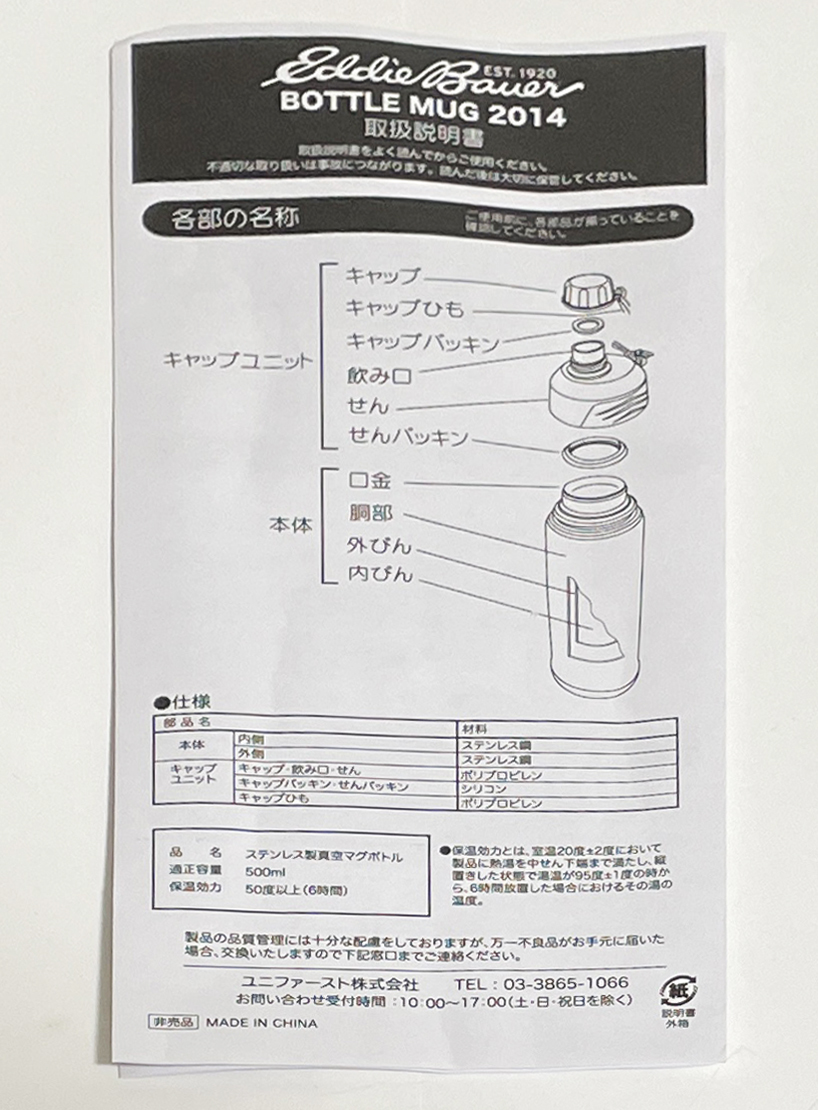 Eddie Bauer
EST. 1920
BOTTLE MUG 2014
取扱説明書
取扱説明書をよく読んでからご使用ください。
不適切な取り扱いは事故につながります。読んだ後は大切に保管してください。
各部の名称
ご使用前に、各部品が揃っていることを
確認してください。
キャップ
キャップひも
キャップパッキン
キャップユニット
飲み口
せん
せんパッキン
口金
胴部
本体
外びん
内びん
●仕様
部品名 材料
本体 内側 ステンレス鋼
外側 ステンレス鋼
キャップ
ユニット
キャップ・飲み口・せん ポリプロピレン
キャップパッキン・せんパッキン シリコン
キャップひも ポリプロピレン
品 名 ステンレス製真空マグボトル
適正容量 500ml
保温効力 50度以上(6時間)
●保温効力とは、室温20度±2度において
製品に熱湯を中せん下端まで満たし、縦
置きした状態で湯温が95度±1度の時か
ら、6時間放置した場合におけるその湯の
温度。
製品の品質管理には十分な配慮をしておりますが、万一不良品がお手元に届いた
場合、交換いたしますので下記窓口までご連絡ください。
ユニファースト株式会社 TEL：03-3865-1066
お問い合わせ受付時間：10:00～17:00(土・日・祝日を除く)
紙
説明書
外箱
非売品 MADE IN CHINA